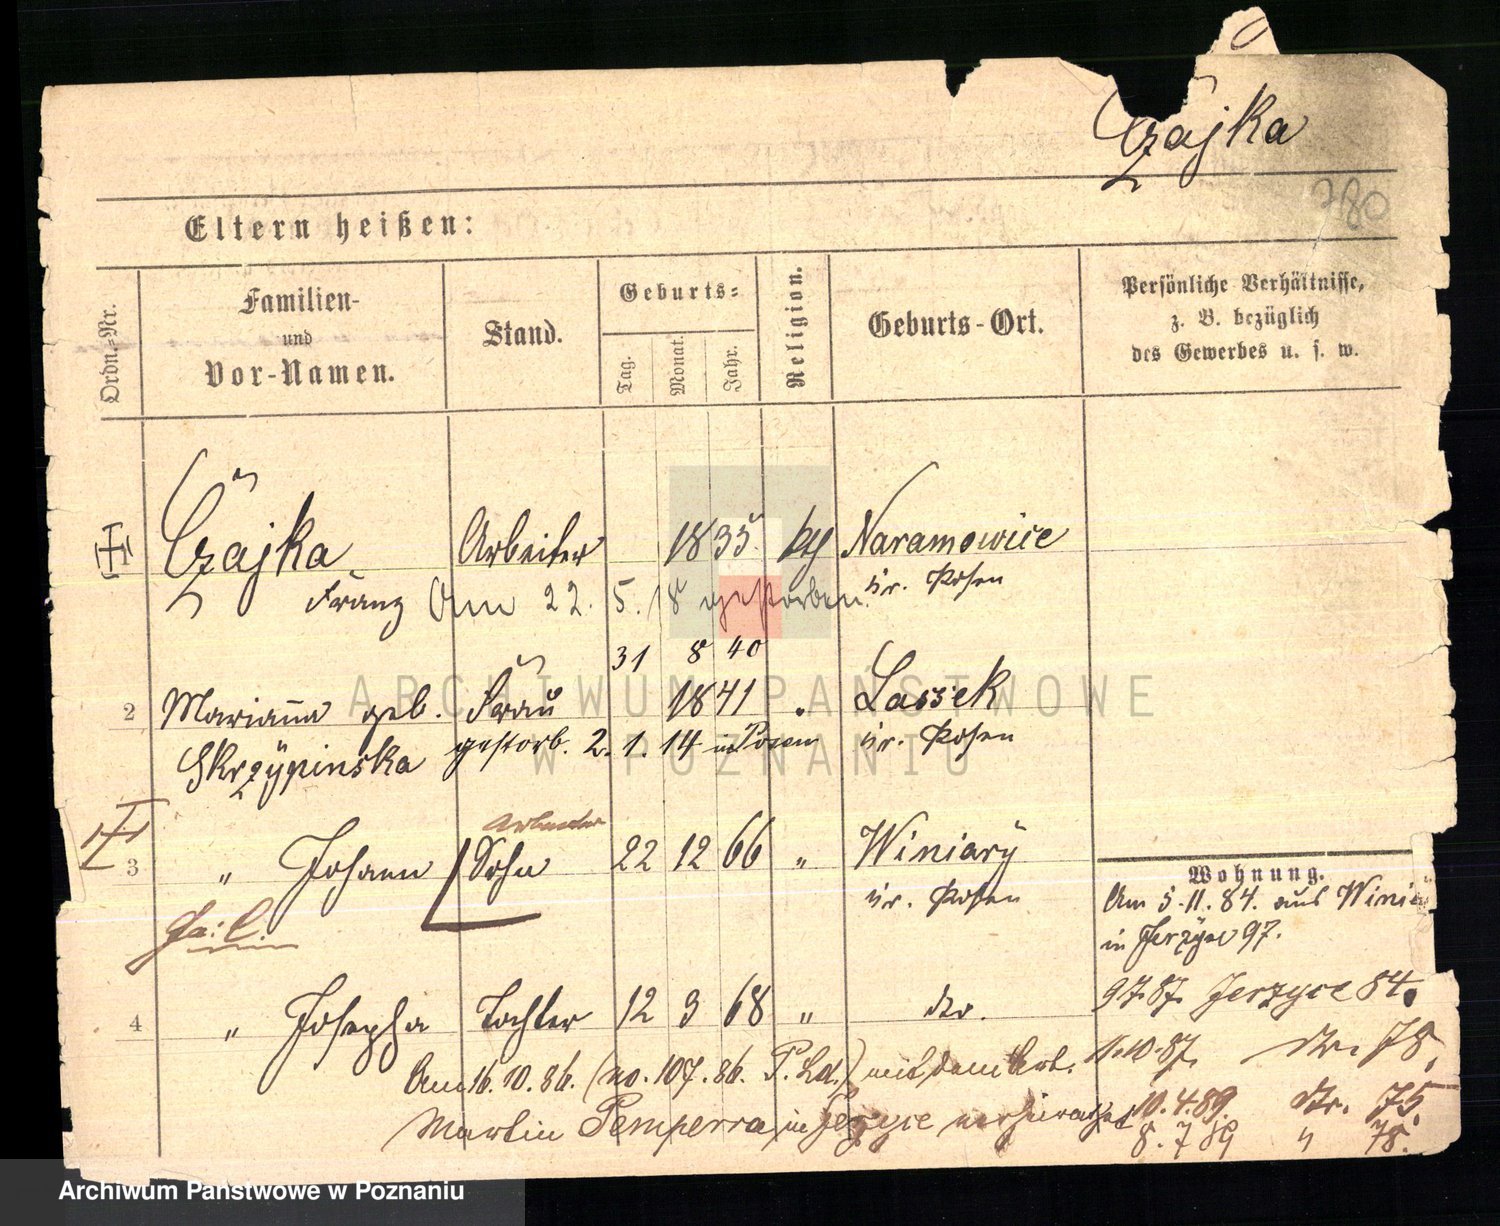 Czajka
780
Eltern heißen:
Ordn.-Nr.
Familien-
und
Vor-Namen.
Stand.
Geburts-
Tag.
Monat.
Jahr.
Religion.
Geburts-Ort.
Persönliche Verhältnisse,
z. B. bezüglich
des Gewerbes u. s. w.
Czajka Arbeiter 1835 Naramowice
Franz Am 22. 5. 18 gestorben. Kr. Posen
31 8 40
2 Marianna geb. Frau 1841 " Lassek
Skrzypinska gestorb. 2. 1. 14 in Posen Kr. Posen
Arbeiter
3 " Johann Sohn 22 12 66 " Winiary
Kr. Posen
Wohnung.
Am 5.11.84. aus
in Jerzyce 97.
4 " Josepha Tochter 12 3 68 " do.
9.7.87. Jerzyce 84.
Am 16.10.86. (no. 107.86. P. Ld.) mit dem Arb.
1.10.87. do. 78.
Martin Pemperra in Jerzyce verheirathet
10.4.89. do. 75.
8.7.89 " 78.
ARCHIWUM PAŃSTWOWE
W POZNANIU
Archiwum Państwowe w Poznaniu